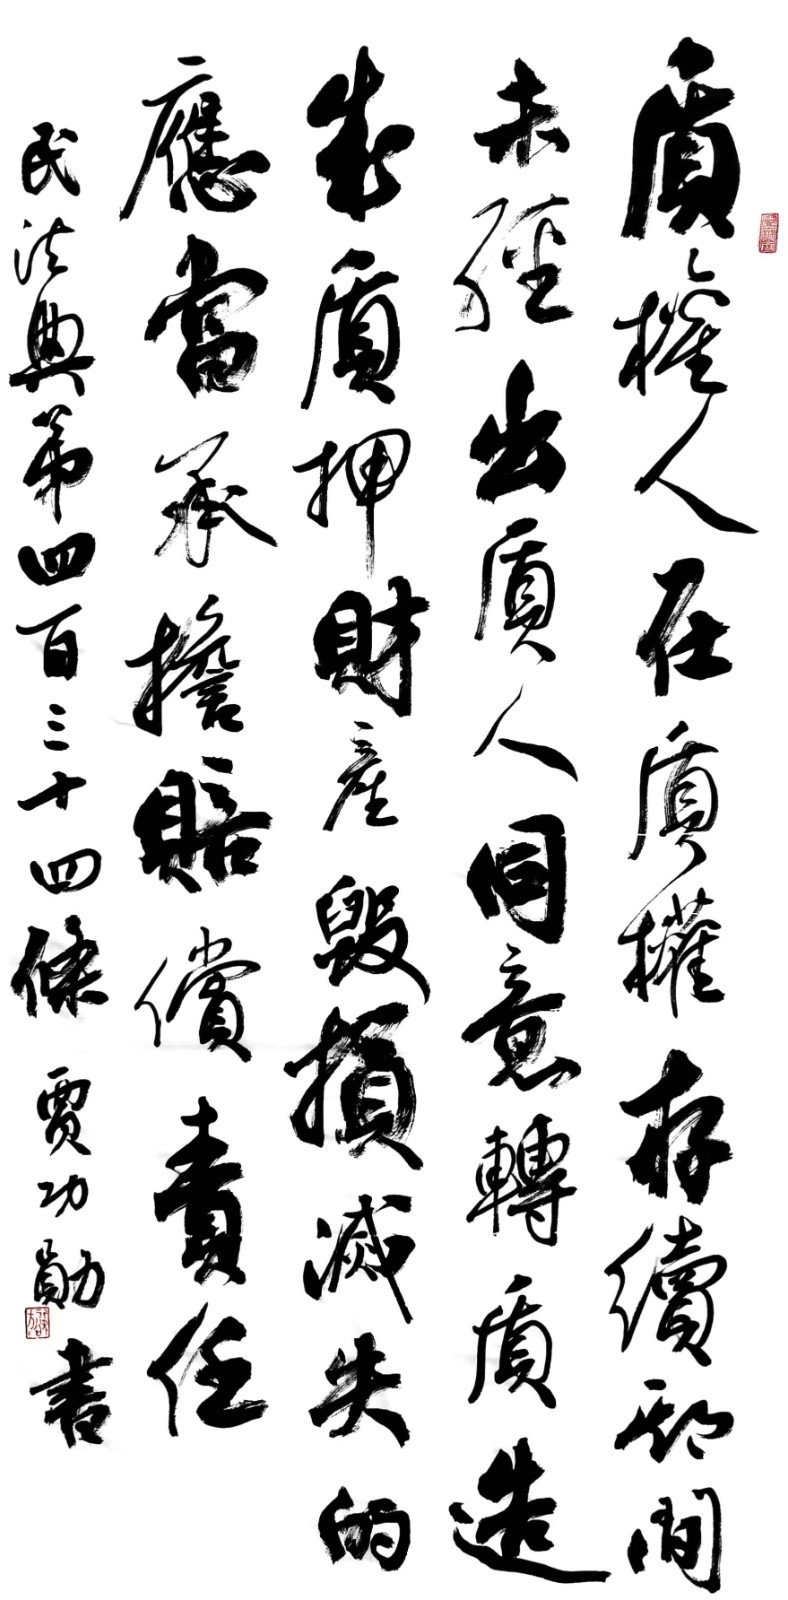 質權人在質權存續期間
未經出質人同意轉質造
成質押財產毀損滅失的
應當承擔賠償責任
民法典第四百三十四條 賈功勛書